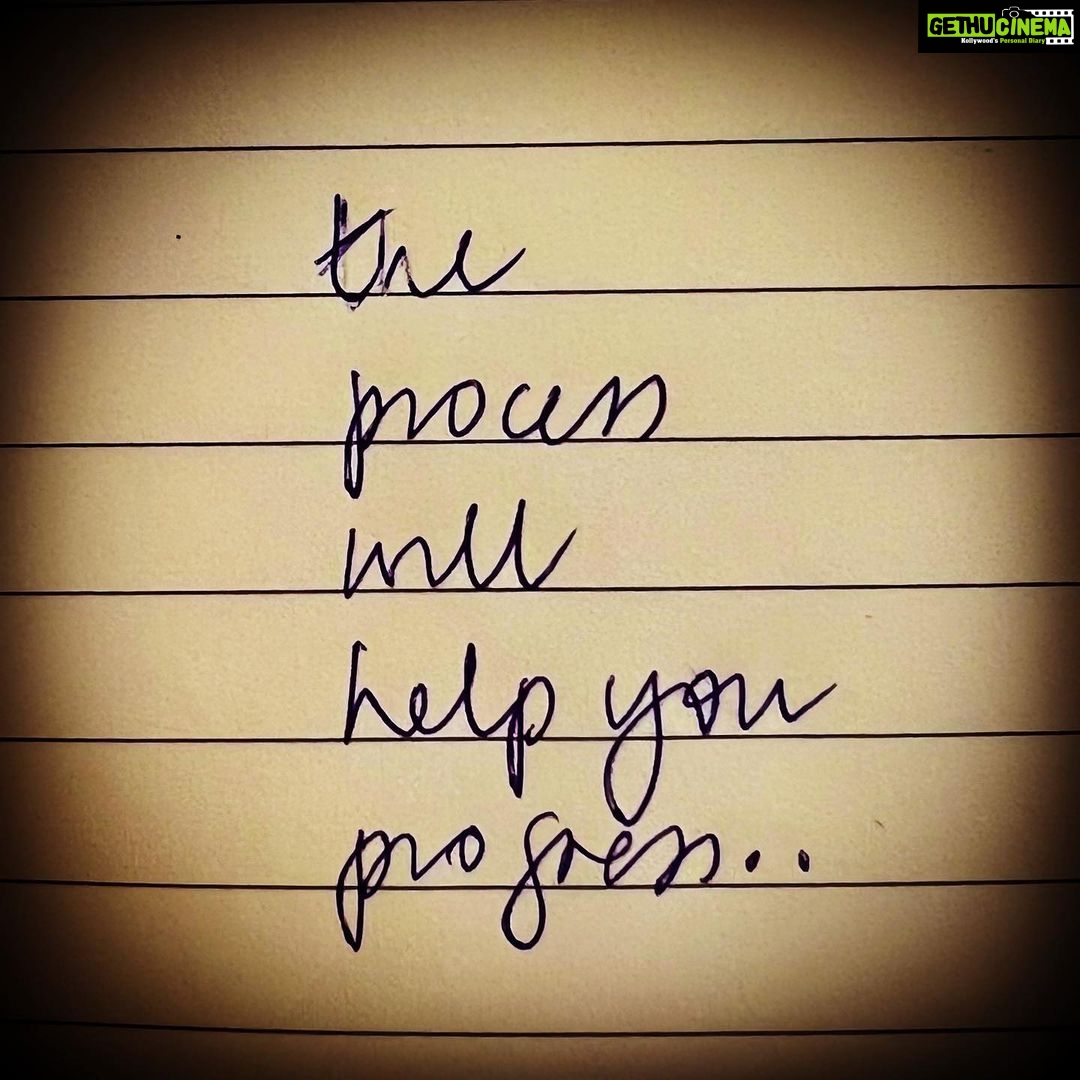 GETHUCINEMA
Kollywood's Personal Diary
the
process
will
help you
progress..